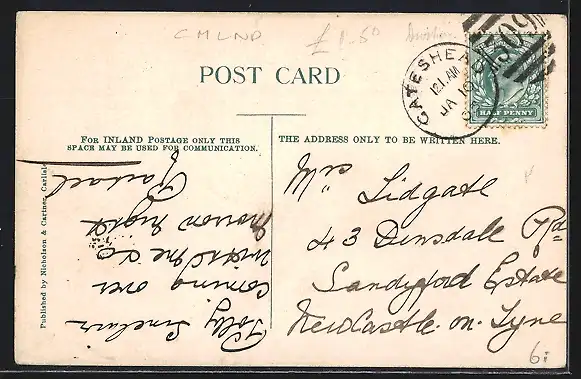 CMLND £1.50
POST CARD
GATESHEAD
12.1 AM
JA 10
309
HALF PENNY
FOR INLAND POSTAGE ONLY THIS
SPACE MAY BE USED FOR COMMUNICATION.
THE ADDRESS ONLY TO BE WRITTEN HERE.
Mrs Lidgate
43 Dinsdale Rd
Sandyford Estate
Newcastle-on-Tyne
Polly Sinclair
coming over
with me to
morrow night
Published by Nicholson & Cartner, Carlisle
6